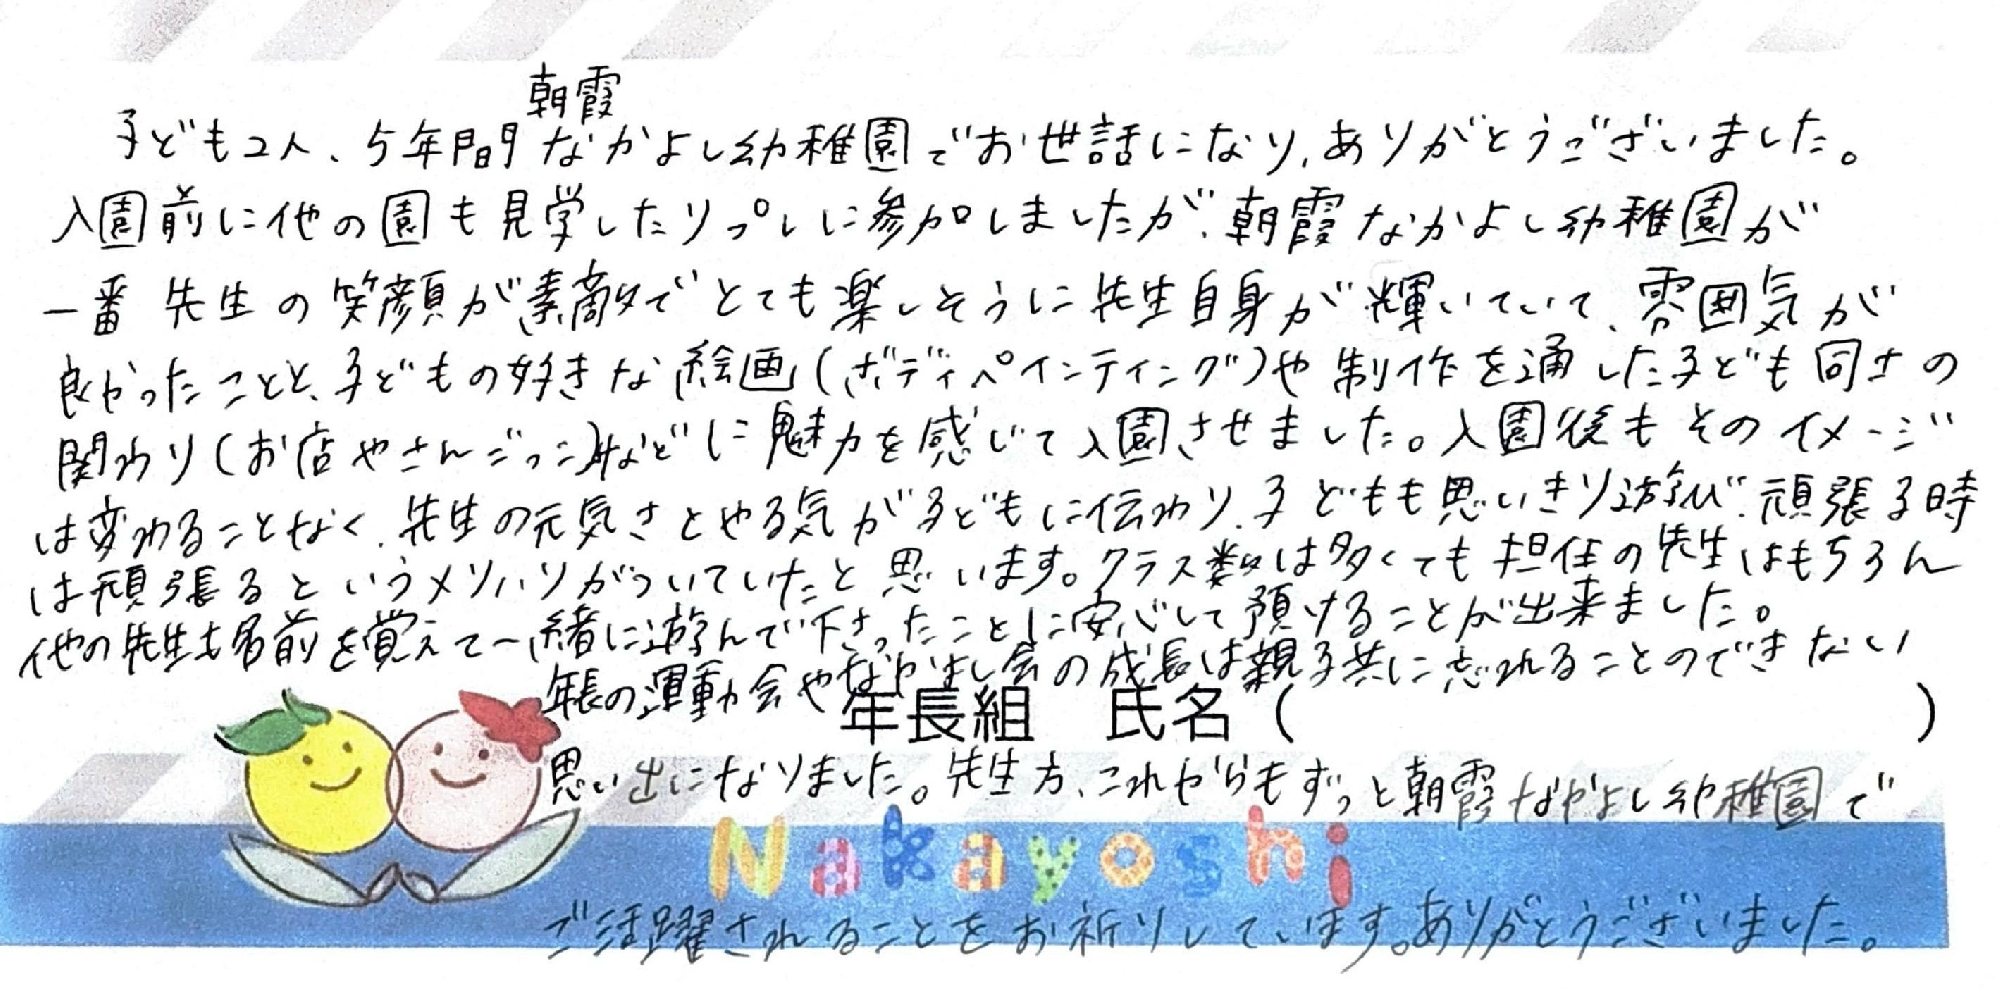 朝霞
子ども2人、5年間なかよし幼稚園でお世話になり、ありがとうございました。
入園前に他の園も見学したりプレに参加しましたが、朝霞なかよし幼稚園が
一番先生の笑顔が素敵でとても楽しそうに先生自身が輝いていて、雰囲気が
良かったことと、子どもの好きな絵画(ボディペインティング)や制作を通した子ども同士の
関わり(お店やさんごっこ)などに魅力を感じて入園させました。入園後もそのイメージ
は変わることなく、先生の元気さとやる気が子どもに伝わり、子どもも思いきり遊び、頑張る時
は頑張るというメリハリがついていたと思います。クラス数は多くても担任の先生はもちろん
他の先生も名前を覚えて一緒に遊んで下さったことに安心して預けることが出来ました。
年長の運動会やなかよし会の成長は親子共に忘れることのできない
年長組 氏名( )
思い出になりました。先生方、これからもずっと朝霞なかよし幼稚園で
Nakayoshi
ご活躍されることをお祈りしています。ありがとうございました。